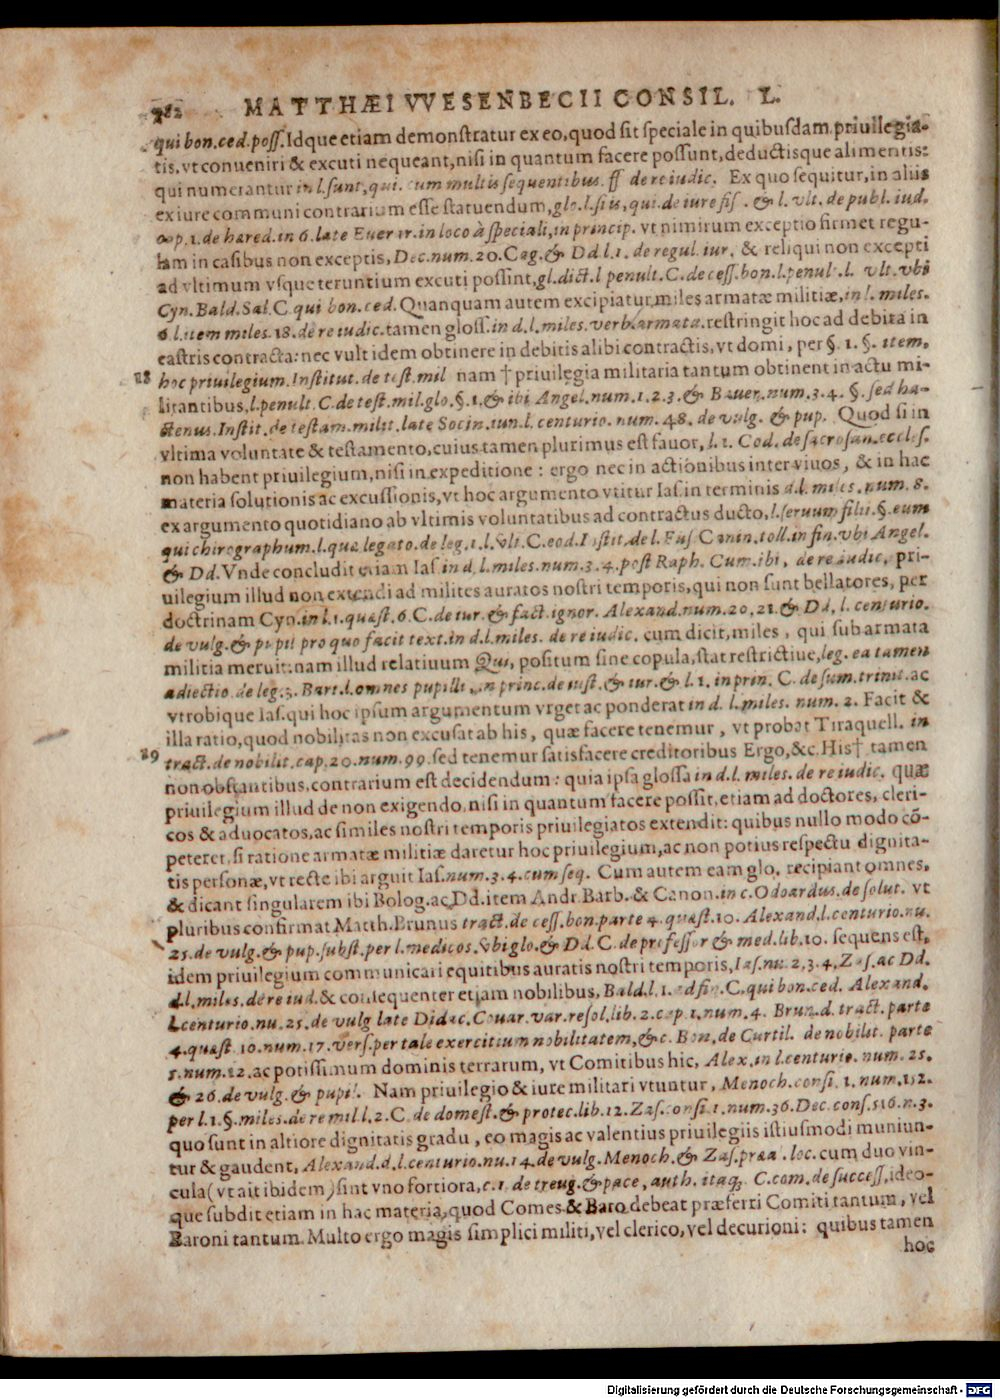 282 MATTHÆI VVESENBECII CONSIL. L.
qui bon. ced. poss. Idque etiam demonstratur ex eo, quod sit speciale in quibusdam priuilegia-
tis, vt conueniri & excuti nequeant, nisi in quantum facere possunt, deductisque alimentis:
qui numerantur in l. sunt, qui. cum multis sequentibus. ff. de re iudic. Ex quo sequitur, in aliis
ex iure communi contrarium esse statuendum, glo. l. si is, qui. de iure fis. & l. vlt. de publ. iud.
cap. 1. de hæred. in 6. late Euer. in loco à speciali, in princip. vt nimirum exceptio firmet regu-
lam in casibus non exceptis, Dec. num. 20. Cag. & Dd. l. 1. de regul. iur. & reliqui non excepti
ad vltimum vsque teruntium excuti possint, gl. dict. l penult. C. de cess. bon. l. penul. l. vlt. vbi
Cyn. Bald. Sal. C. qui bon. ced. Quanquam autem excipiatur, miles armatæ militiæ, in l. miles.
6. l. item miles. 18. de re iudic. tamen gloss. in d. l. miles. verb. armata. restringit hoc ad debita in
castris contracta: nec vult idem obtinere in debitis alibi contractis, vt domi, per §. 1. §. item,
28 hoc priuilegium. Institut. de test. mil nam † priuilegia militaria tantum obtinent in actu mi-
litantibus, l. penult. C. de test. mil. glo. §. 1. & ibi Angel. num. 1. 2. 3. & Bauer. num. 3. 4. §. sed ha-
ctenus. Instit. de testam. milit. late Socin. iun. l. centurio. num. 48. de vulg. & pup. Quod si in
vltima voluntate & testamento, cuius tamen plurimus est fauor, l. 1. Cod. de sacrosan. eccles.
non habent priuilegium, nisi in expeditione: ergo nec in actionibus inter viuos, & in hac
materia solutionis ac excussionis, vt hoc argumento vtitur Ias. in terminis d. l. miles. num. 8.
ex argumento quotidiano ab vltimis voluntatibus ad contractus ducto, l. seruum filii. §. eum
qui chirographum. l. qua legato. de leg. 1. l. vlt. C. eod. Instit. de l. Fus. Canin. toll. in fin. vbi Angel.
& Dd. Vnde concludit etiam Ias. in d. l. miles. num. 3. 4. post Raph. Cum. ibi, de re iudic, pri-
uilegium illud non extendi ad milites auratos nostri temporis, qui non sunt bellatores, per
doctrinam Cyn. in l. 1. quæst. 6. C. de iur. & fact. ignor. Alexand. num. 20. 21. & Dd, l. centurio.
de vulg. & pupil pro quo facit text. in d. l. miles. de re iudic. cum dicit, miles, qui sub armata
militia meruit: nam illud relatiuum Qui, positum sine copula, stat restrictiue, leg. ea tamen
adiectio. de leg. 3. Bart. l. omnes pupilli. in princ. de iust. & iur. & l. 1. in prin. C. de sum. trinit. ac
vtrobique Ias. qui hoc ipsum argumentum vrget ac ponderat in d. l. miles. num. 2. Facit &
illa ratio, quod nobilitas non excusat ab his, quæ facere tenemur, vt probat Tiraquell. in
29 tract. de nobilit. cap. 20. num. 99. sed tenemur satisfacere creditoribus Ergo, &c. His† tamen
non obstantibus, contrarium est decidendum: quia ipsa glossa in d. l. miles. de re iudic. quæ
priuilegium illud de non exigendo, nisi in quantum facere possit, etiam ad doctores, cleri-
cos & aduocatos, ac similes nostri temporis priuilegiatos extendit: quibus nullo modo cō-
peteret, si ratione armatæ militiæ daretur hoc priuilegium, ac non potius respectu dignita-
tis personæ, vt recte ibi arguit Ias. num. 3. 4. cum seq. Cum autem eam glo. recipiant omnes,
& dicant singularem ibi Bolog. ac Dd. item Andr. Barb. & Canon. in c. Odoardus. de solut. vt
pluribus confirmat Matth. Brunus tract. de cess. bon. parte 4. quæst. 10. Alexand. l. centurio. nu.
25. de vulg. & pup. subst. per l. medicos. vbi glo. & Dd. C. de professor & med. lib. 10. sequens est,
idem priuilegium communicari equitibus auratis nostri temporis, Ias. nu. 2, 3. 4, Zas. ac Dd.
d. l. miles. de re iud. & consequenter etiam nobilibus, Bald. l. 1. ad fin. C. qui bon. ced. Alexand.
l. centurio. nu. 25. de vulg late Didac. Couar. var. resol. lib. 2. cap. 1. num. 4. Brun. d. tract. parte
4. quæst. 10. num. 17. vers. per tale exercitium nobilitatem, &c. Bon, de Curtil. de nobilit. parte
5. num. 12. ac potissimum dominis terrarum, vt Comitibus hic, Alex. in l. centurio. num. 25.
& 26. de vulg. & pupil. Nam priuilegio & iure militari vtuntur, Menoch. consi. 1. num. 152.
per l. 1. §. miles. de re mil l. 2. C. de domest. & protec. lib. 12. Zas. consi. 1. num. 36. Dec. cons. 516. n. 3.
quo sunt in altiore dignitatis gradu, eo magis ac valentius priuilegiis istiusmodi muniun-
tur & gaudent, Alexand. d. l. centurio. nu. 14. de vulg. Menoch. & Zas. præal. loc. cum duo vin-
cula (vt ait ibidem) sint vno fortiora, c. 1. de treug. & pace, auth. itaq; C. com. de success, ideo-
que subdit etiam in hac materia, quod Comes & Baro debeat præferri Comiti tantum, vel
Baroni tantum. Multo ergo magis simplici militi, vel clerico, vel decurioni: quibus tamen
hoc
Digitalisierung gefördert durch die Deutsche Forschungsgemeinschaft - DFG